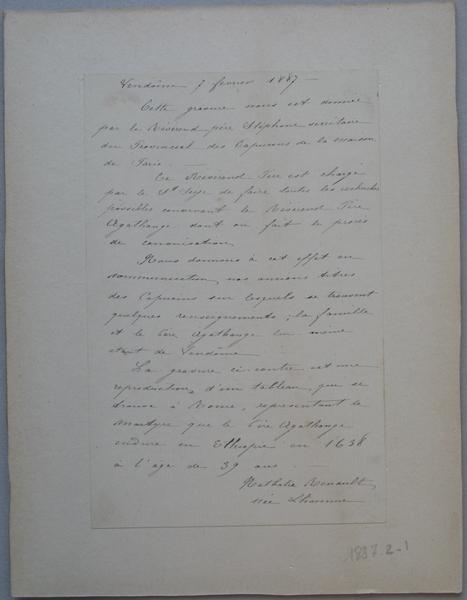 Vendôme 7 février 1887 —
Cette gravure nous est donnée
par le Révérend père Stéphane secrétaire
du Provincial des Capucins de la maison
de Paris. —
Ce Révérend Père est chargé
par le St Siège de faire toutes les recherches
possibles concernant le Révérend Père
Agathange dont on fait le procès
de canonisation.
Nous donnons à cet effet en
communication, nos anciens titres
des Capucins sur lesquels se trouvent
quelques renseignements ; la famille
et le Père Agathange lui même
étant de Vendôme.
La gravure ci-contre est une
reproduction, d'un tableau, que se
trouve à Rome, représentant le
martyre que le Père Agathange
endura en Ethiopie en 1638
à l'âge de 39 ans. —
Nathalie Renault
née Lhomme
1897.2-1